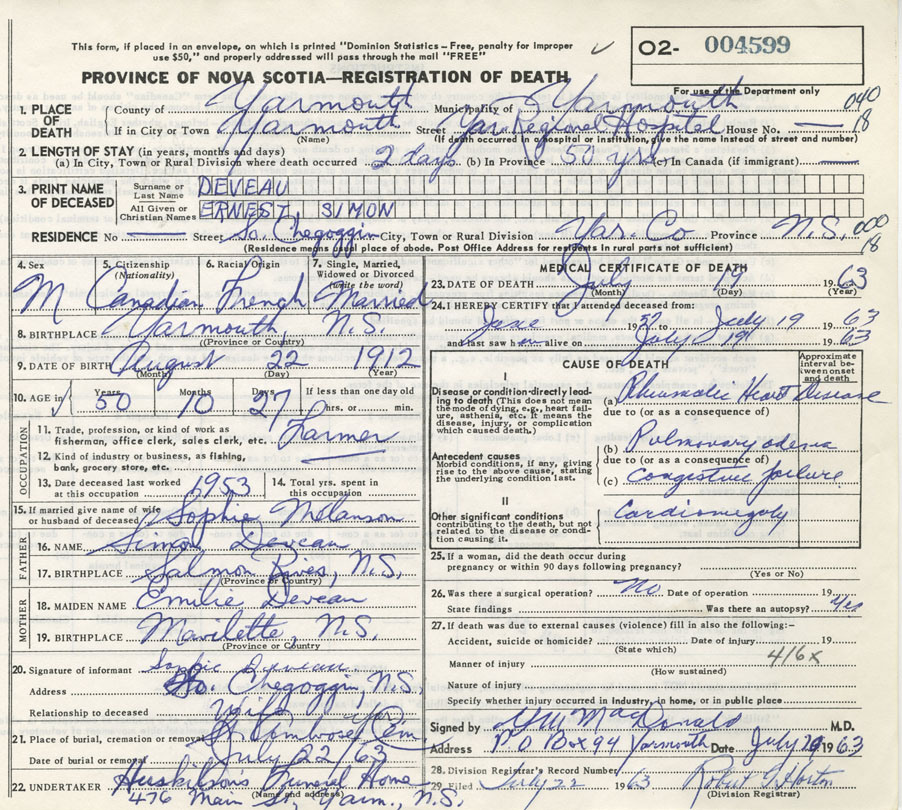 This form, if placed in an envelope, on which is printed "Dominion Statistics - Free, penalty for improper
use $50," and properly addressed will pass through the mail "FREE"
02- 004599
PROVINCE OF NOVA SCOTIA—REGISTRATION OF DEATH
For use of the Department only
1. PLACE OF DEATH County of Yarmouth Municipality of Yarmouth 040
If in City or Town Yarmouth Street Yar Regional Hospital House No. — 18
(Name) (If death occurred in a hospital or institution, give the name instead of street and number)
2. LENGTH OF STAY (in years, months and days)
(a) In City, Town or Rural Division where death occurred 2 days (b) In Province 50 yrs (c) In Canada (if immigrant) —
3. PRINT NAME OF DECEASED Surname or Last Name DEVEAU
All Given or Christian Names ERNEST, SIMON
RESIDENCE No — Street So. Chegoggin City, Town or Rural Division Yar. Co Province N.S. 000
(Residence means usual place of abode. Post Office Address for residents in rural parts not sufficient) 18
4. Sex M
5. Citizenship (Nationality) Canadian
6. Racial Origin French
7. Single, Married, Widowed or Divorced (write the word) Married
8. BIRTHPLACE Yarmouth, N.S.
(Province or Country)
9. DATE OF BIRTH August 22 1912
(Month) (Day) (Year)
10. AGE in Years 50 Months 10 Days 27 If less than one day old
hrs. or min.
OCCUPATION
11. Trade, profession or kind of work as fisherman, office clerk, sales clerk, etc. Farmer
12. Kind of industry or business, as fishing, bank, grocery store, etc.
13. Date deceased last worked at this occupation 1953
14. Total yrs. spent in this occupation
15. If married give name of wife or husband of deceased Sophie Melanson
FATHER
16. NAME Simon Deveau
17. BIRTHPLACE Salmon River, N.S.
(Province or Country)
MOTHER
18. MAIDEN NAME Emilie Deveau
19. BIRTHPLACE Mavilette, N.S.
(Province or Country)
20. Signature of informant Sophie Deveau
Address So. Chegoggin, N.S.
Relationship to deceased Wife
21. Place of burial, cremation or removal St. Ambrose Cem
Date of burial or removal July 22/63
22. UNDERTAKER Huskilson's Funeral Home
(Name and address)
476 Main St, Yarm., N.S.
MEDICAL CERTIFICATE OF DEATH
23. DATE OF DEATH July 19 1963
(Month) (Day) (Year)
24. I HEREBY CERTIFY that I attended deceased from:
June 1957 to July 19 1963
and last saw him alive on July 19 1963
CAUSE OF DEATH
Approximate interval between onset and death
I
Disease or condition directly leading to death (This does not mean the mode of dying, e.g., heart failure, asthenia, etc. It means the disease, injury, or complication which caused death.)
(a) Rheumatic Heart Disease
due to (or as a consequence of)
Antecedent causes
Morbid conditions, if any, giving rise to the above cause, stating the underlying condition last.
(b) Pulmonary edema
due to (or as a consequence of)
(c) Congestive failure
II
Other significant conditions contributing to the death, but not related to the disease or condition causing it.
Cardiomegaly
25. If a woman, did the death occur during pregnancy or within 90 days following pregnancy?
(Yes or No)
26. Was there a surgical operation? No Date of operation 19
State findings Was there an autopsy? Yes
27. If death was due to external causes (violence) fill in also the following:-
Accident, suicide or homicide? Date of injury 19
(State which)
416x
Manner of injury
(How sustained)
Nature of injury
Specify whether injury occurred in industry, in home, or in public place
Signed by MacDonald M.D.
Address P O Box 94 Yarmouth Date July 1963
28. Division Registrar's Record Number
29. Filed July 22 1963 Robert Horton
(Division Registrar)